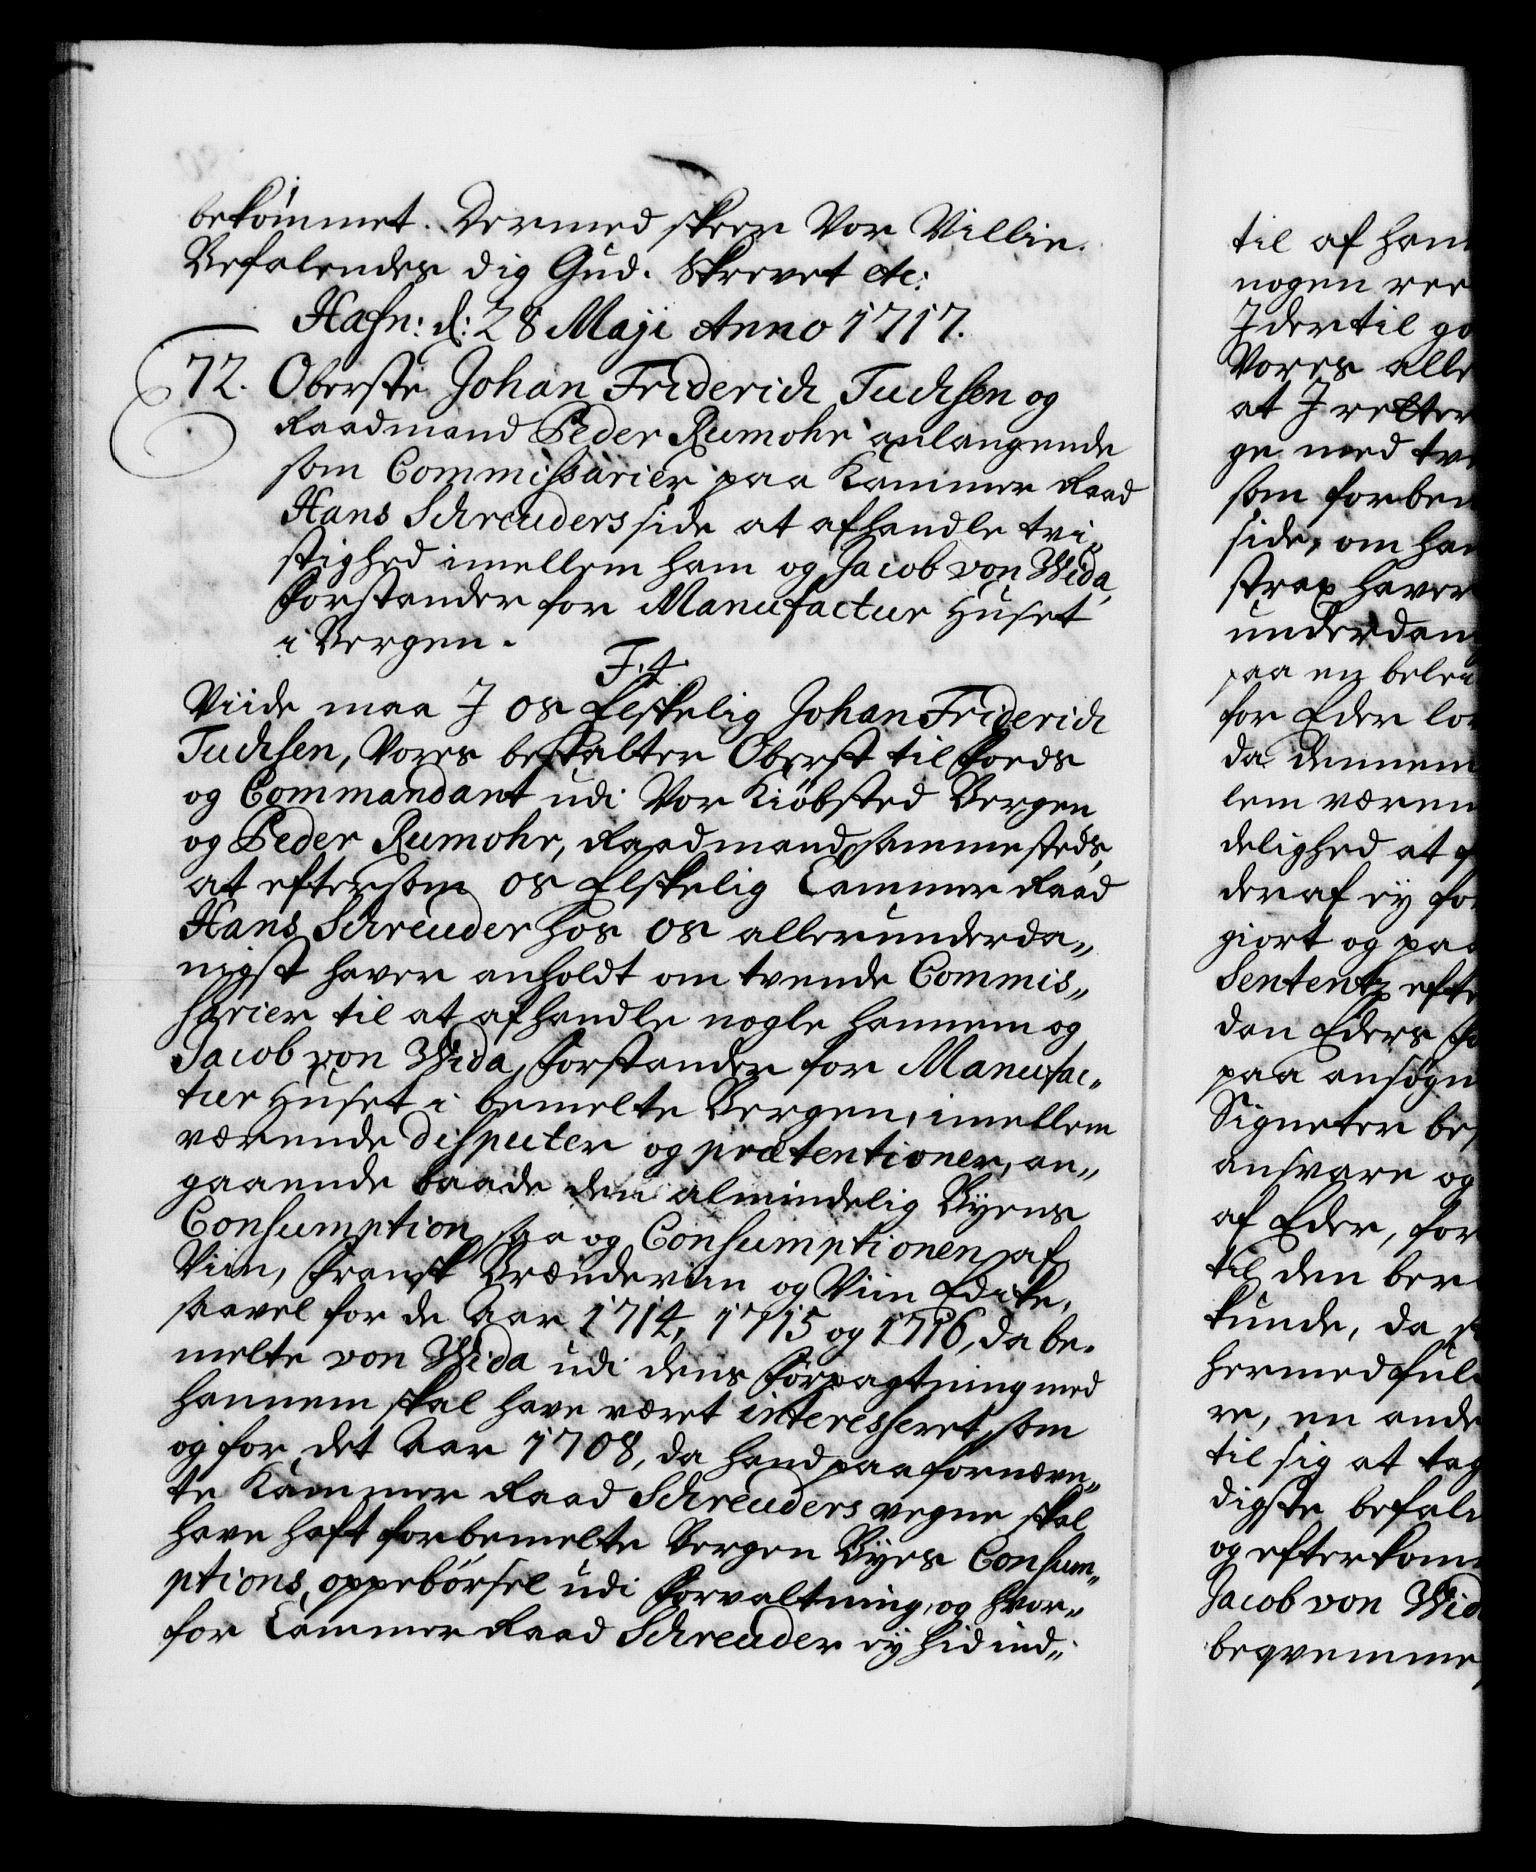 bekommet. Dermed skeer Vor Villie.
Befalendes dig Gud. Skrevet etc:
Hafn: d: 28 Maji Anno 1717.
72. Oberste Johan Friderich Tuchsen og
Raadmand Peder Rumohr anlangende
som Commissarier paa Kammer Raad
Hans Schreuders side at afhandle tvi-
stighed imellem ham og Jacob von Wida,
Forstander for Manufactur Huset
i Bergen.
F. 4.
Viide maa J os Elskelig Johan Friderich
Tuchsen, Vores bestalter Oberst til Foeds
og Commandant udi Vor Kiöbsted Bergen,
og Peder Rumohr, Raadmand sammesteds,
at eftersom os Elskelig Cammer Raad
Hans Schreuder hos os allerunderda„
nigst haver anholdt om tvende Commis„
sarier til at afhandle nogle hannem og
Jacob von Wida, Forstander for Manufac„
tur Huset i bemelte Bergen, imellem
værende disputer og prætentioner, an„
gaaende baade den almindelig Byens
Consumption saa og Consumptionen af
Viin, Fransk Brændeviin og Viin Edike,
saavel for de Aar 1714, 1715 og 1716, da be-
melte von Wida udi dens Forpagtning med
hannem skal have været interesseret, som
og for det Aar 1708, da hand paa fornævn„
te Kammer Raad Schreuders vegne skal
have haft forbemelte Bergen Byes Consum„
ptions oppebörsel udi Forvaltning, og hvor„
for Cammer Raad Schreuder ey hid ind„
til af han
nogen ree
J dertil go
Vores alle
at J retter
ge med tve
som forben
side, om han
strax haver
underdan
paa en belei
for Eder lo
da dennem
lem væren
delighed at
deraf ey for
giort og paa
Sententz efte
dan Eders
paa ansögn
Signeter be
ansvare og
af Eder, for
til den ber
kunde, da
hermed ful
re, en ande
til sig at tag
digste befale
og efterkom
Jacob von Wid
beqvemme